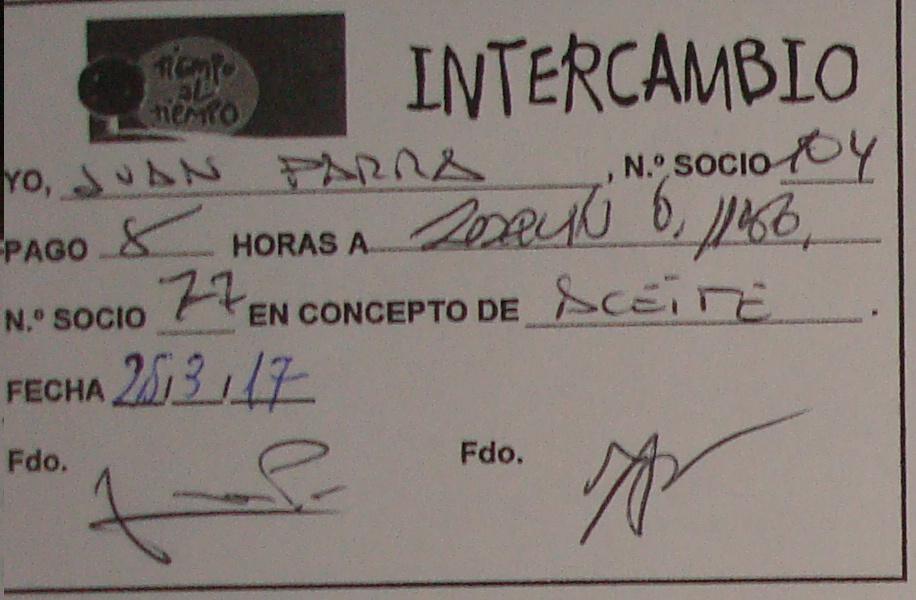 tiempo
al
tiempo
INTERCAMBIO
YO, JUAN PARRA, N.º SOCIO 104
PAGO 8 HORAS A
N.º SOCIO 77 EN CONCEPTO DE ACEITE.
FECHA 25/3/17
Fdo. Fdo.